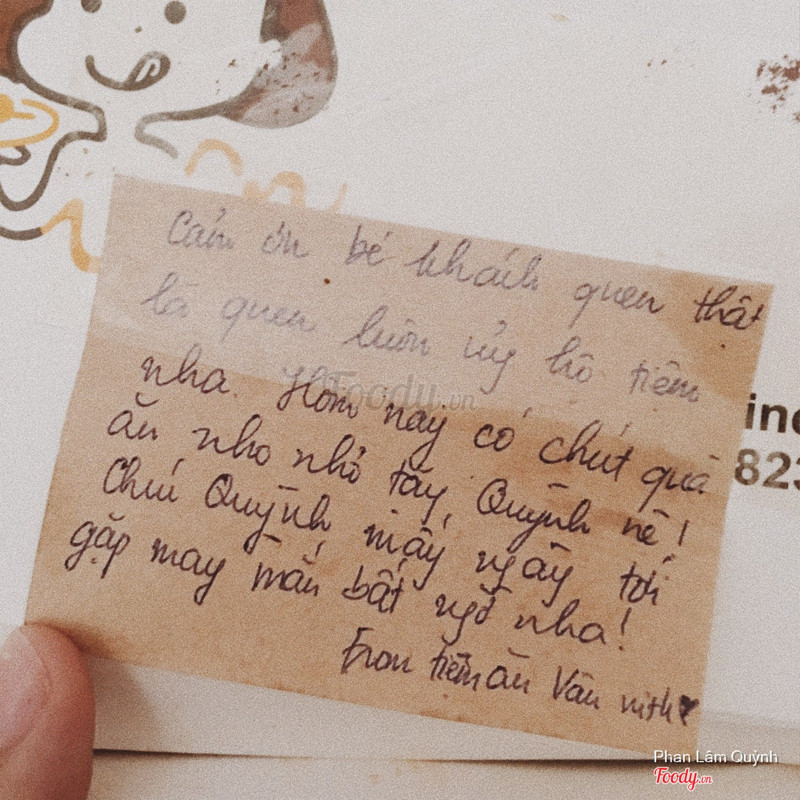 Cảm ơn bé khách quen thật
là quen luôn ủng hộ tiệm
nha. Hôm nay có chút quà
ăn nho nhỏ tặng Quỳnh nè!
Chúc Quỳnh mấy ngày tới
gặp may mắn bất ngờ nha!
From tiệm ăn Vân with
ine
823
Foody.vn
Phan Lâm Quỳnh
Foody.vn